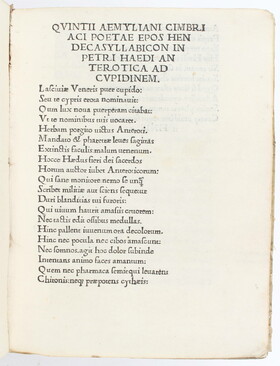 QVINTII AEMYLIANI CIMBRI
ACI POETAE EPOS HEN
DECASYLLABICON IN
PETRI HAEDI AN
TEROTICA AD
CVPIDINEM.
Lasciuiæ Veneris puer cupido:
Seu te cypris erota nominauit:
Quom lux noua puerperam citabat:
Vt te nominibus uiri uocarent.
Herbam porgito uictus Anteroti.
Mandato & pharetræ leues sagittas
Extinctis faculis malum uenenum.
Hocce Hædus fieri dei sacerdos
Horum auctor iubet Anteroticorum:
Qui sane moniore nemo se unq̃
Scribet militiæ tuæ sciens sequetur
Duri blanditias tui furoris:
Qui uiuum haurit amasiis cruorem:
Nec tactis edit ossibus medullas.
Hinc pallens iuuenum ora decolorem.
Hinc nec pocula nec cibos amascunt:
Nec somnos. agit hoc dolor subinde
Internans animo faces amantum:
Quem nec pharmaca semiequi leuarent
Chironis: neq; præpotens cytharis: